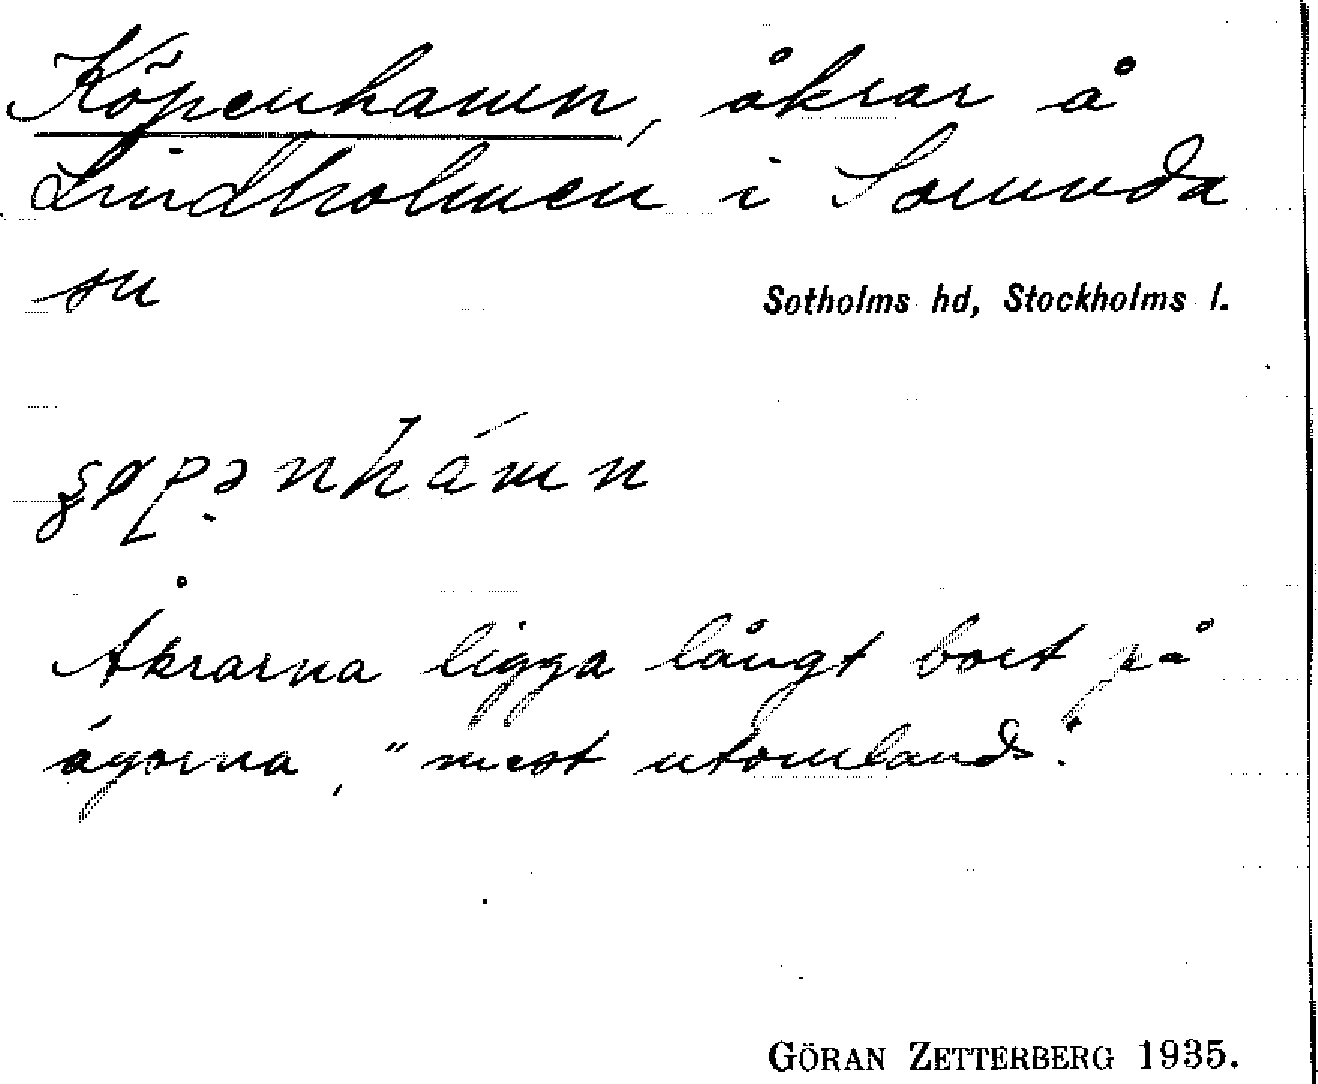 Köpenhamn, åkrar å
Lindholmen i Sorunda
sn
Sotholms hd, Stockholms l.
Åkrarna ligga långt bort på
ägorna, "mest utomlands".
GÖRAN ZETTERBERG 1935.